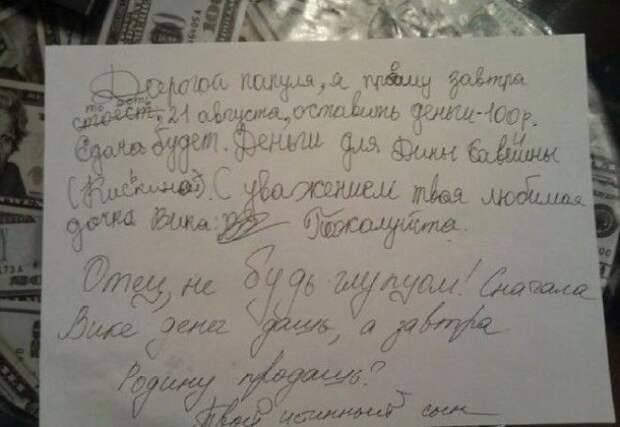 Дорогой папуля, я прошу завтра
то есть, 21 августа, оставить деньги - 100 р.
Сдача будет. Деньги для Дины Савейны
(Кискиной). С уважением твоя любимая
дочка Вика. Пожалуйста.
Отец, не будь глупцом! Сначала
Вике денег дашь, а завтра
Родину продашь?
Твой истинный сын